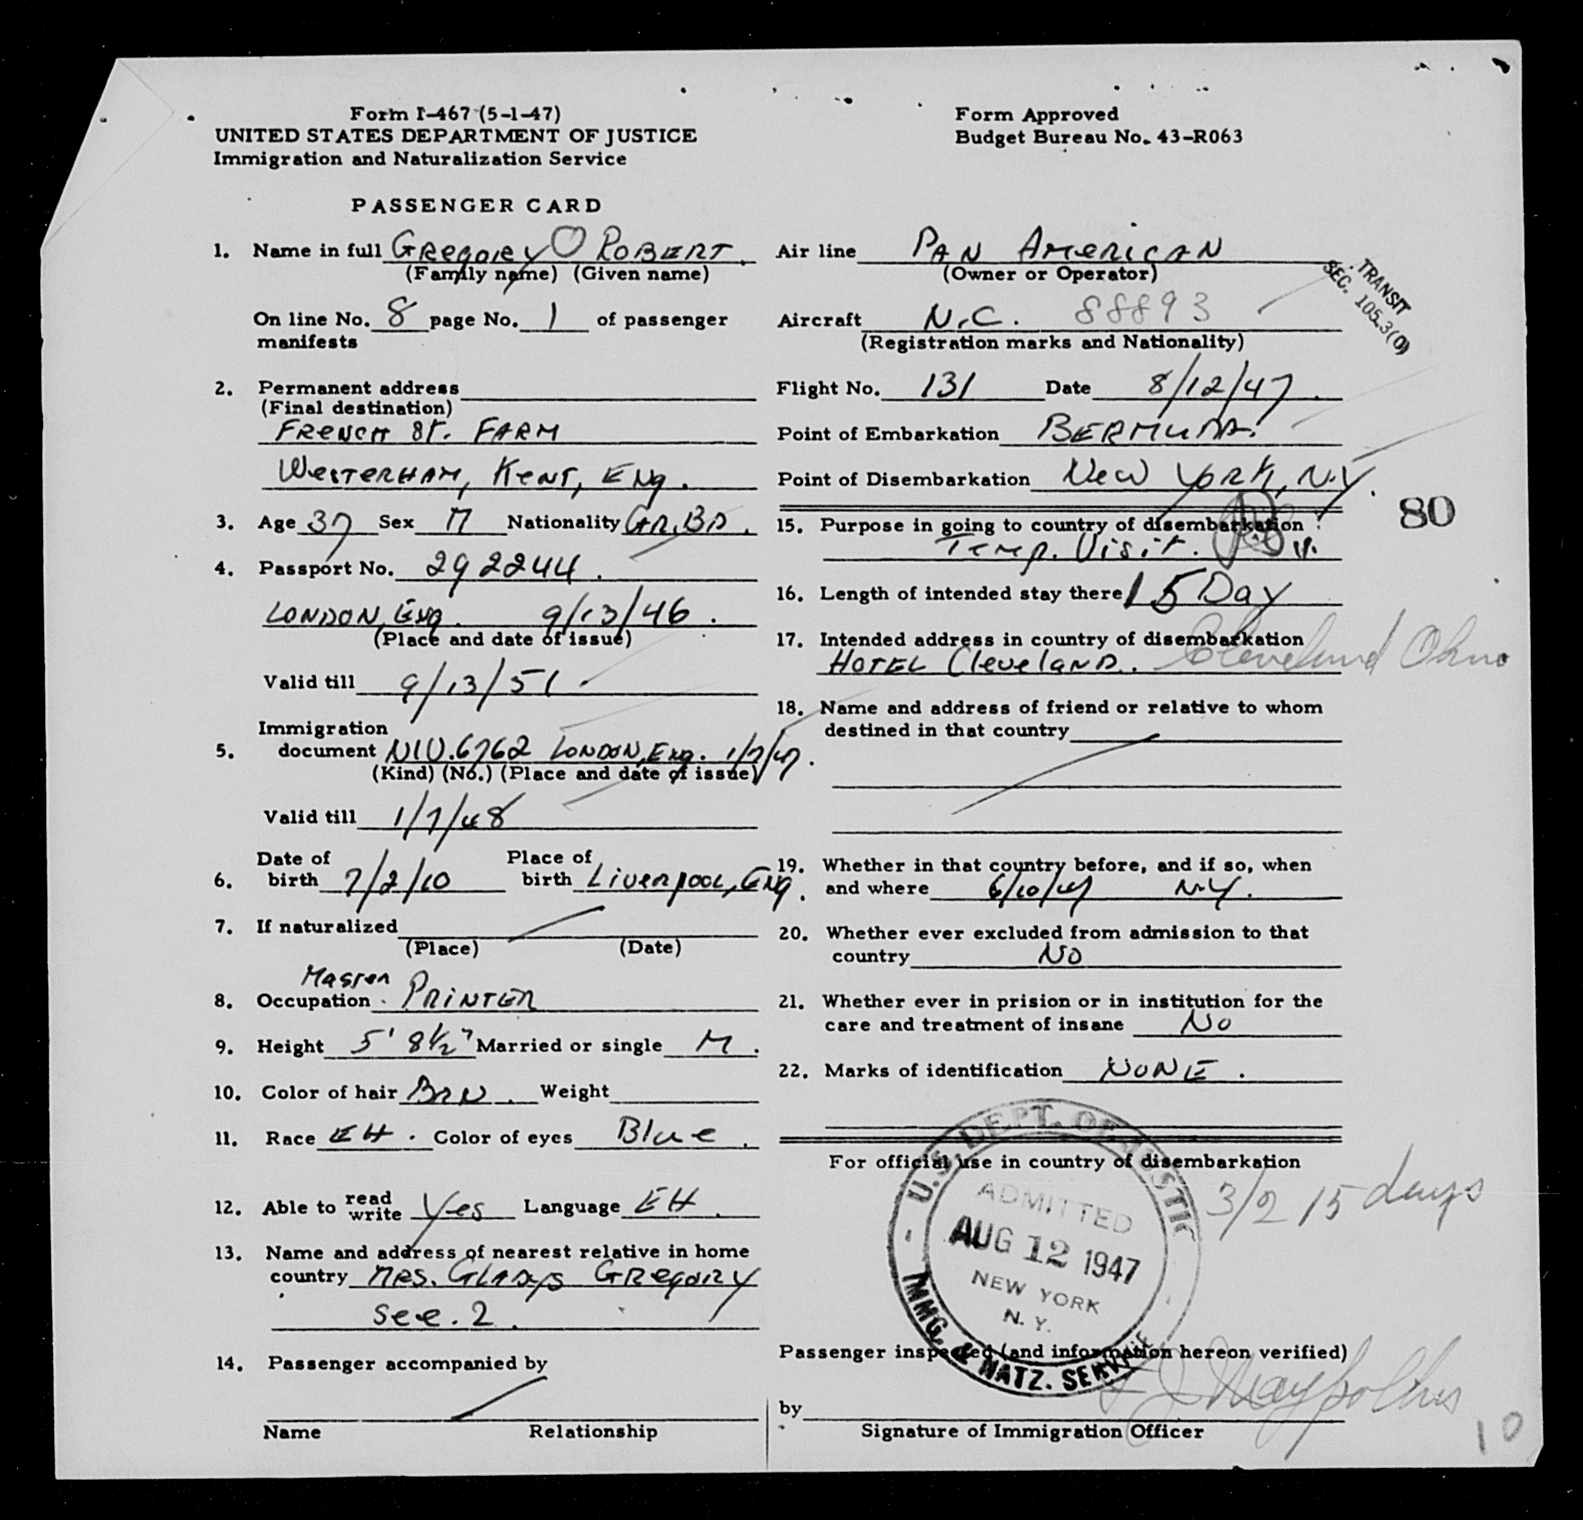 Form I-467 (5-1-47)
UNITED STATES DEPARTMENT OF JUSTICE
Immigration and Naturalization Service
Form Approved
Budget Bureau No. 43-R063
PASSENGER CARD
1. Name in full GREGORY ROBERT.
(Family name) (Given name)
On line No. 8 page No. 1 of passenger
manifests
2. Permanent address
(Final destination)
FRENCH ST. FARM
WESTERHAM, KENT, ENg.
3. Age 37 Sex M Nationality GR.BR.
4. Passport No. 292244.
LONDON, Eng. 9/13/46.
(Place and date of issue)
Valid till 9/13/51.
Immigration
5. document NIV.6762 LONDON, Eng. 1/7/47.
(Kind) (No.) (Place and date of issue)
Valid till 1/7/48
Date of Place of
6. birth 7/2/10 birth LIVERPOOL, ENg.
7. If naturalized
(Place) (Date)
Master
8. Occupation. PRINTER
9. Height 5' 8½" Married or single M.
10. Color of hair BRN. Weight
11. Race EH. Color of eyes Blue.
12. Able to read write Yes Language EH.
13. Name and address of nearest relative in home
country MRS. GLADYS GREGORY
see. 2.
14. Passenger accompanied by
Name Relationship
Air line PAN AMERICAN
(Owner or Operator)
TRANSIT
SEC. 105.3(0)
Aircraft N.C. 88893
(Registration marks and Nationality)
Flight No. 131 Date 8/12/47.
Point of Embarkation BERMUDA.
Point of Disembarkation NEW YORK, N.Y.
80
15. Purpose in going to country of disembarkation
Temp. Visit.
16. Length of intended stay there 15 Day
17. Intended address in country of disembarkation
HOTEL CLEVELAND. Cleveland Ohio
18. Name and address of friend or relative to whom
destined in that country
19. Whether in that country before, and if so, when
and where 6/10/47 N.Y.
20. Whether ever excluded from admission to that
country NO
21. Whether ever in prision or in institution for the
care and treatment of insane No
22. Marks of identification NONE.
For official use in country of disembarkation
3/2 15 days
U.S. DEPT. OF JUSTIC
ADMITTED
AUG 12 1947
NEW YORK
N. Y.
IMMG. & NATZ. SERVICE
Passenger inspected (and information hereon verified)
by
Signature of Immigration Officer
10